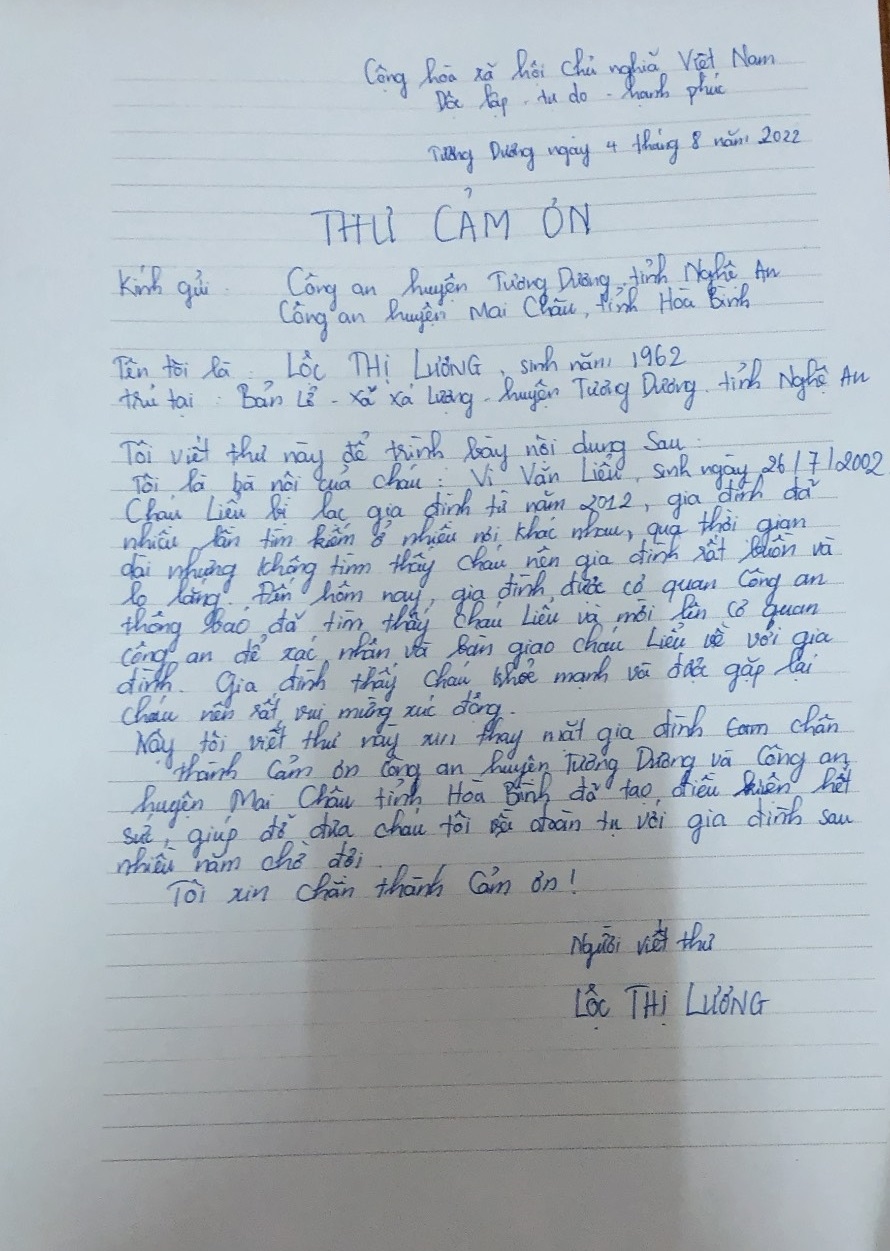 Cộng hòa xã hội chủ nghĩa Việt Nam
Độc lập - tự do - hạnh phúc
Tương Dương ngày 4 tháng 8 năm 2022
THƯ CẢM ƠN
Kính gửi : Công an huyện Tương Dương, tỉnh Nghệ An
Công an huyện Mai Châu, tỉnh Hòa Bình
Tên tôi là : LỘC THỊ LƯƠNG, sinh năm 1962
trú tại : Bản Lẻ - xã xá Lượng - huyện Tương Dương - tỉnh Nghệ An
Tôi viết thư này để trình bày nội dung sau :
Tôi là bà nội của cháu : Vi Văn Liễu, sinh ngày 26/7/2002
Cháu Liễu bị lạc gia đình từ năm 2012, gia đình đã
nhiều lần tìm kiếm ở nhiều nơi khác nhau, qua thời gian
dài nhưng không tìm thấy cháu nên gia đình rất buồn và
lo lắng. Đến hôm nay, gia đình được cơ quan Công an
thông báo đã tìm thấy cháu Liễu và mời lên cơ quan
công an để xác nhận và bàn giao cháu Liễu về với gia
đình. Gia đình thấy cháu khỏe mạnh và được gặp lại
cháu nên rất vui mừng xúc động.
Nay tôi viết thư này xin thay mặt gia đình cảm chân
thành cảm ơn công an huyện Tương Dương và Công an
huyện Mai Châu tỉnh Hòa Bình đã tạo điều kiện hết
sức, giúp đỡ đưa cháu tôi về đoàn tụ với gia đình sau
nhiều năm chờ đợi.
Tôi xin chân thành cảm ơn !
Người viết thư
LỘC THỊ LƯƠNG